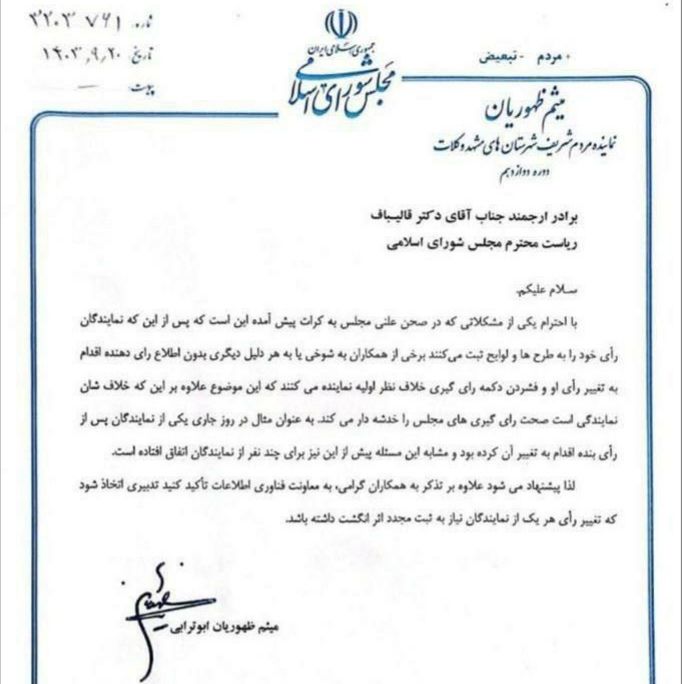 جمهوری اسلامی ایران
مجلس شورای اسلامی
شماره
تاریخ ۱۴۰۳,۹,۲۰
پیوست —
۰ مردم - تبعیض
میثم ظهوریان
نماینده مردم شریف شهرستان های مشهد و کلات
دوره دوازدهم
برادر ارجمند جناب آقای دکتر قالیباف
ریاست محترم مجلس شورای اسلامی
سلام علیکم.
با احترام یکی از مشکلاتی که در صحن علنی مجلس به کرات پیش آمده این است که پس از این که نمایندگان
رأی خود را به طرح ها و لوایح ثبت می‌کنند برخی از همکاران به شوخی یا به هر دلیل دیگری بدون اطلاع رای دهنده اقدام
به تغییر رأی او و فشردن دکمه رای گیری خلاف نظر اولیه نماینده می کنند که این موضوع علاوه بر این که خلاف شان
نمایندگی است صحت رای گیری های مجلس را خدشه دار می کند. به عنوان مثال در روز جاری یکی از نمایندگان پس از
رأی بنده اقدام به تغییر آن کرده بود و مشابه این مسئله پیش از این نیز برای چند نفر از نمایندگان اتفاق افتاده است.
لذا پیشنهاد می شود علاوه بر تذکر به همکاران گرامی، به معاونت فناوری اطلاعات تأکید کنید تدبیری اتخاذ شود
که تغییر رأی هر یک از نمایندگان نیاز به ثبت مجدد اثر انگشت داشته باشد.
میثم ظهوریان ابوترابی